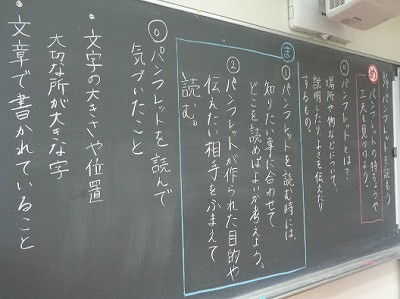 パンフレットを読もう
め
パンフレットの特ちょうや
工夫を見つけよう。
パンフレットとは?
場所や物などについて、
説明したりよさを伝えたり
するもの。
ま
①パンフレットを読む時には、
知りたい事に合わせて
どこを読めばよいか考えよう。
②パンフレットが作られた目的や
伝えたい相手をふまえて
読む。
◎パンフレットを読んで
気づいたこと
・文字の大きさや位置
大切な所が大きな字
・文章で書かれていること